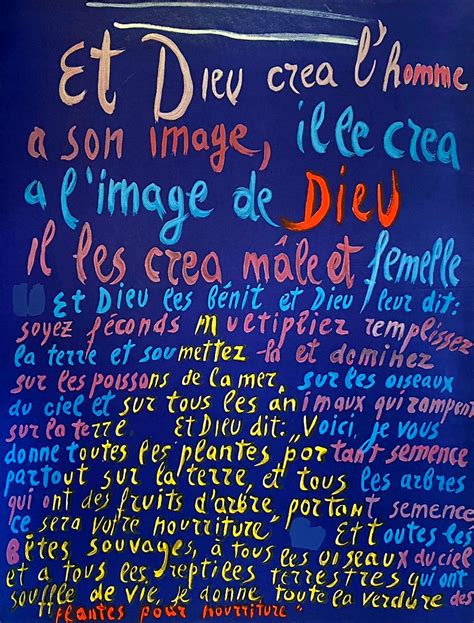 Et Dieu crea l'homme
a son image, il le crea
a l'image de Dieu
il les crea mâle et femelle
Et Dieu les bénit et Dieu leur dit:
soyez féconds Multipliez remplissez
la terre et soumettez-la et dominez
sur les poissons de la mer, sur les oiseaux
du ciel et sur tous les animaux qui rampent
sur la terre Et Dieu dit: „Voici, je vous
donne toutes les plantes portant semence
partout sur la terre, et tous les arbres
qui ont des fruits d'arbre, portant semence
ce sera votre nourriture" Et toutes les
Bêtes sauvages, à tous les oiseaux du ciel
et a tous les reptiles terrestres qui ont
souffle de vie, je donne toute la verdure des
plantes pour nourriture"